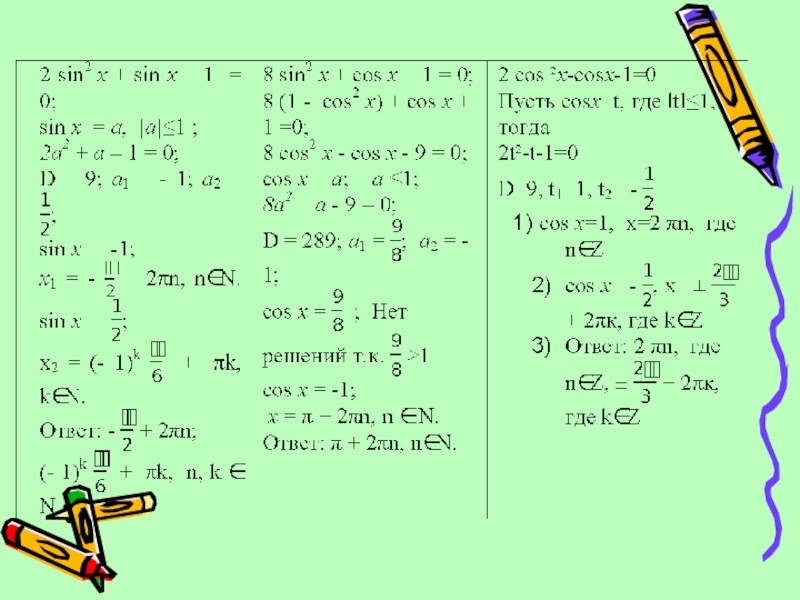 2 sin² x + sin x 1 =
0;
sin x = a, |a|≤1 ;
2a² + a – 1 = 0;
D 9; a₁ - 1; a₂
1/2;
sin x -1;
x₁ = - /2 2πn, n∈N.
sin x 1/2;
x₂ = (- 1)ᵏ /6 + πk,
k∈N.
Ответ: - /2 + 2πn;
(- 1)ᵏ /6 + πk, n, k ∈
N
8 sin² x + cos x 1 = 0;
8 (1 - cos² x) + cos x +
1 =0;
8 cos² x - cos x - 9 = 0;
cos x a; a ≤1;
8a² a - 9 = 0;
D = 289; a₁ = 9/8; a₂ = -
1;
cos x = 9/8 ; Нет
решений т.к. 9/8 >1
cos x = -1;
x = π + 2πn, n ∈ N.
Ответ: π + 2πn, n∈N.
2 cos ²x-cosx-1=0
Пусть cosx t, где ltl≤1,
тогда
2t²-t-1=0
D 9, t₁ 1, t₂ - 1/2
1) cos x=1, x=2 πn, где
n∈Z
2) cos x - 1/2, x ± 2/3
+ 2πк, где k∈Z
3) Ответ: 2 πn, где
n∈Z, ± 2/3 + 2πк,
где k∈Z